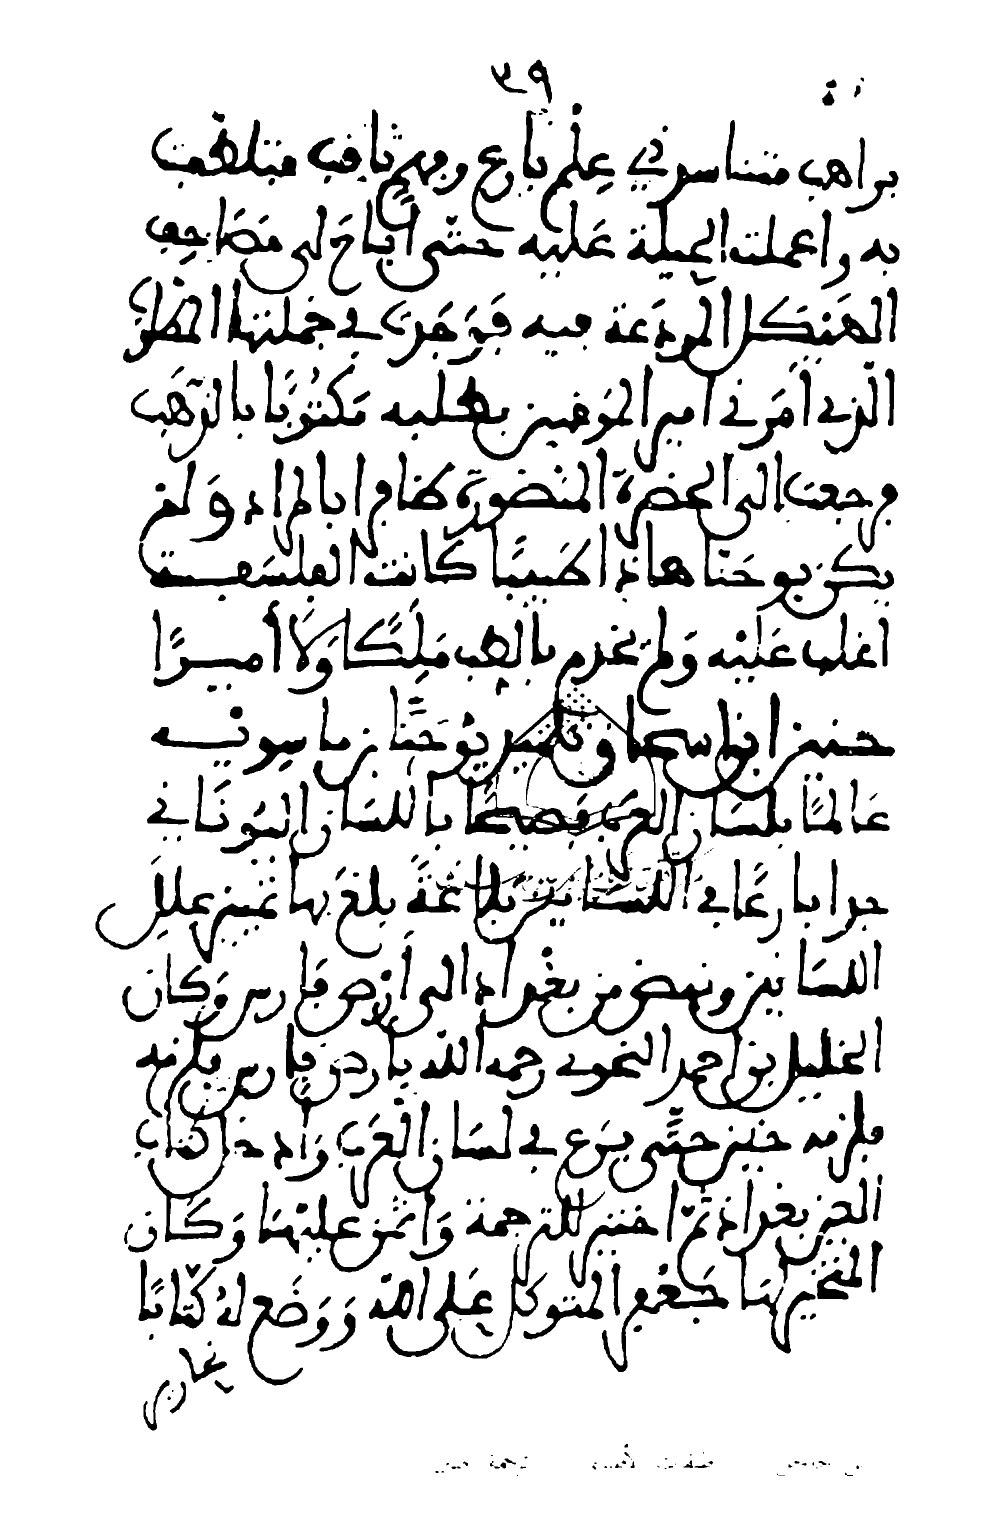 ٣٩
براهب متناسك في علم بارع وفهم ثاقب فتلطفت
به واعملت الحيلة عليه حتى اباح لي مصاحف
الهيكل المودعة فيه فوجدت في جملتها المطلوب
الذي أمرني أمير المؤمنين بطلبه مكتوبًا بالذهب
فرجعت الى الحضرة المنصورة ظافرا بالمراد ولم
يكن يوحنا هاذا طبيبًا كانت الفلسفة
اغلب عليه ولم يخدم بالطب ملكًا ولا أميرًا
حنين ابن اسحاق وتلميذ يوحنا بن ماسويه
عالمًا بلسان العرب فصيحًا باللسان اليوناني
جدا بارعًا في اللسانين بلاغةً بلغ بها تمييز علل
اللسانين ونهض من بغداد الى أرض فارس وكان
الخليل بن احمد النحوي رحمه الله بارض فارس فلزمه
فلزمه حنين حتّى برع في لسان العرب وادخل كتاب
العين بغداد ثمّ اختير للترجمة وائتمن عليها وكان
المتخير لها جعفر المتوكل على الله ووضع له كتابًا